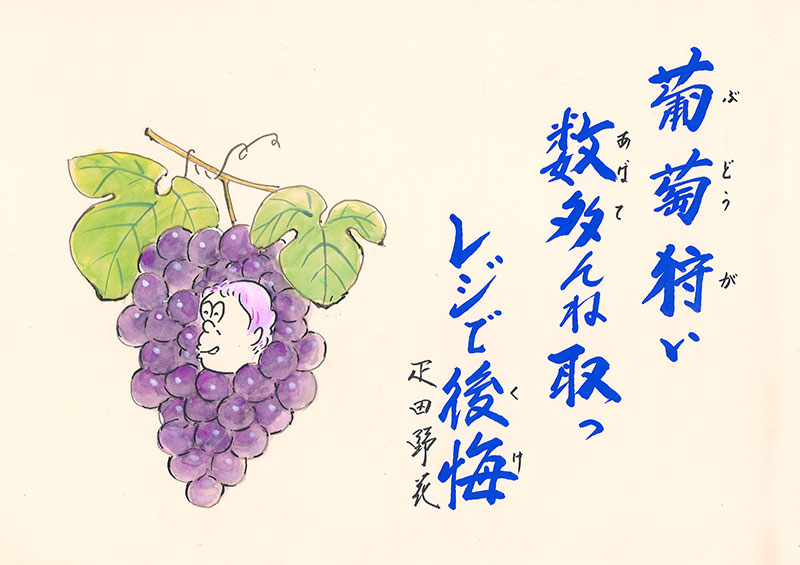 葡萄狩い
ぶどうが
数多んね取っ
あばて
レジで後悔
くけ
疋田野花